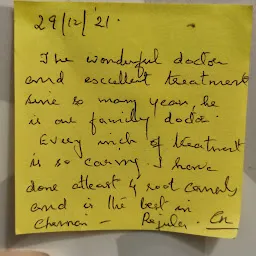 29/12/'21.
The wonderful doctor
and excellent treatment
since so many years, he
is our family doctor.
Every inch of treatment
is so caring. I have
done atleast 4 root canals
and is the best in
Chennai -